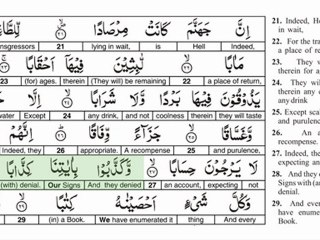 إِنَّ جَهَنَّمَ كَانَتْ مِرْصَادًا ٢١ لِّلطَّا
Indeed, Hell is lying in wait, 21 nsgressors
مَـَٔابًا ٢٢ لَّـٰبِثِينَ فِيهَآ أَحْقَابًا ٢٣
a place of return, 22 (They will) be remaining therein (for) ages. 23
يَذُوقُونَ فِيهَا بَرْدًا وَلَا شَرَابًا ٢٤
they will taste therein coolness and not any drink, 24 Except water
وَغَسَّاقًا ٢٥ جَزَآءً وِفَاقًا ٢٦ إِنَّهُمْ
and purulence, 25 A recompense appropriate. 26 Indeed, they
لَا يَرْجُونَ حِسَابًا ٢٧ وَكَذَّبُوا۟ بِـَٔايَـٰتِنَا كِذَّابًا
not expecting an account, 27 And they denied Our Signs (with) denial.
أَحْصَيْنَـٰهُ كِتَـٰبًا ٢٩
And every thing We have enumerated it (in) a Book. 29
21. Indeed, He
in wait,
22. For the tra
a place of re
23. They will
therein for a
24. They will
therein
any drink
25. Except sca
and purulence
26. An a
recompense.
27. Indeed, they
expecting an
28. And they de
Signs (with)
denial.
29. And every
have enume
Book.